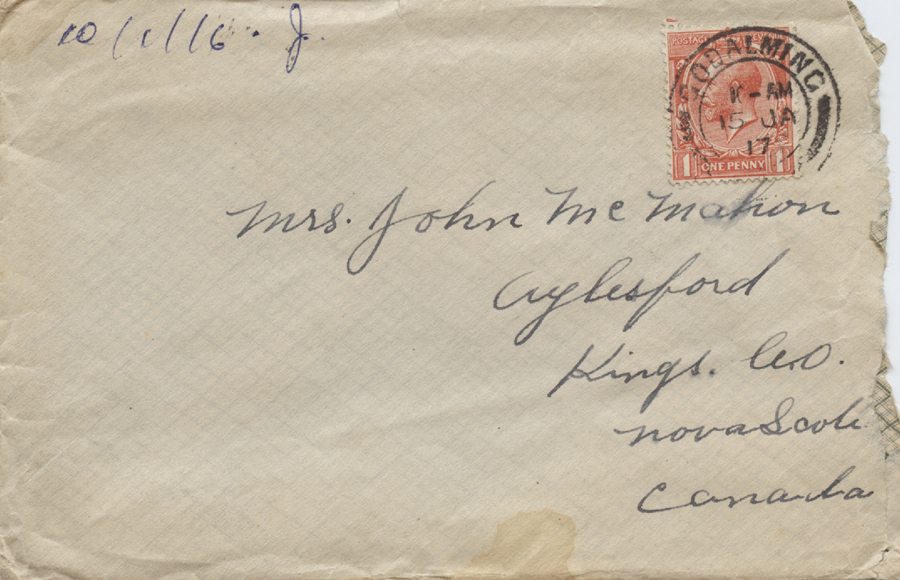 10/1/16. J.
POSTAGE
GODALMING
K-AM
15 JA
17
1 ONE PENNY 1
Mrs. John McMahon
Aylesford
Kings. Co.
Nova Scoti
Canada